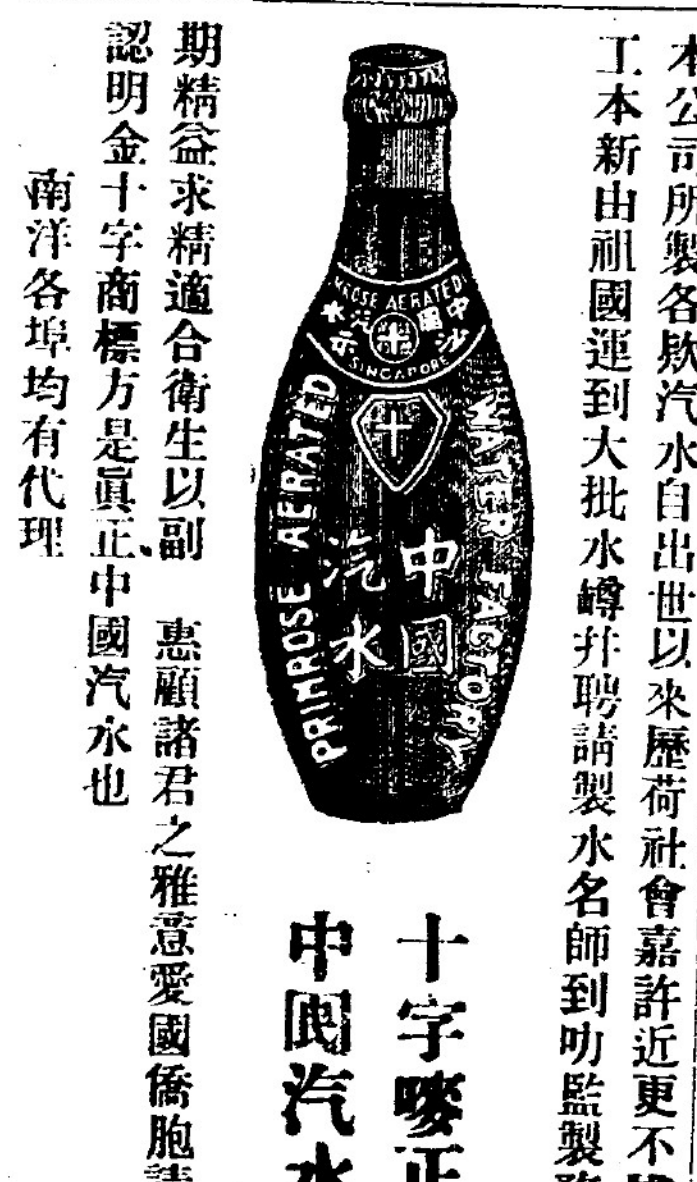 本公司所製各欵汽水自出世以來歷荷社會嘉許近更不
工本新由祖國運到大批水罇幷聘請製水名師到叻監製務
十字嘜正
中國汽水
PRIMROSE AERATED
中國汽水
公示
SINGAPORE
PRIMROSE AERATED
WATER FACTORY
中國
汽水
期精益求精適合衛生以副 惠顧諸君之雅意愛國僑胞請
認明金十字商標方是眞正中國汽水也
南洋各埠均有代理